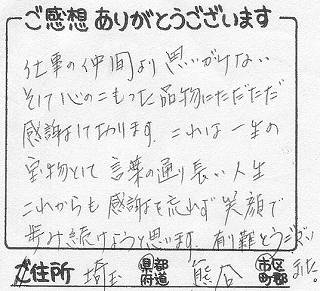 ご感想 ありがとうございます
仕事の仲間より思いがけない
そして心のこもった品物にただただ
感謝しております。これは一生の
宝物として言葉の通り長い人生
これからも感謝を忘れず笑顔で
歩み続けようと思います。有難とうござい
ました。
ご住所 埼玉 都道府県 熊谷 市区町郡